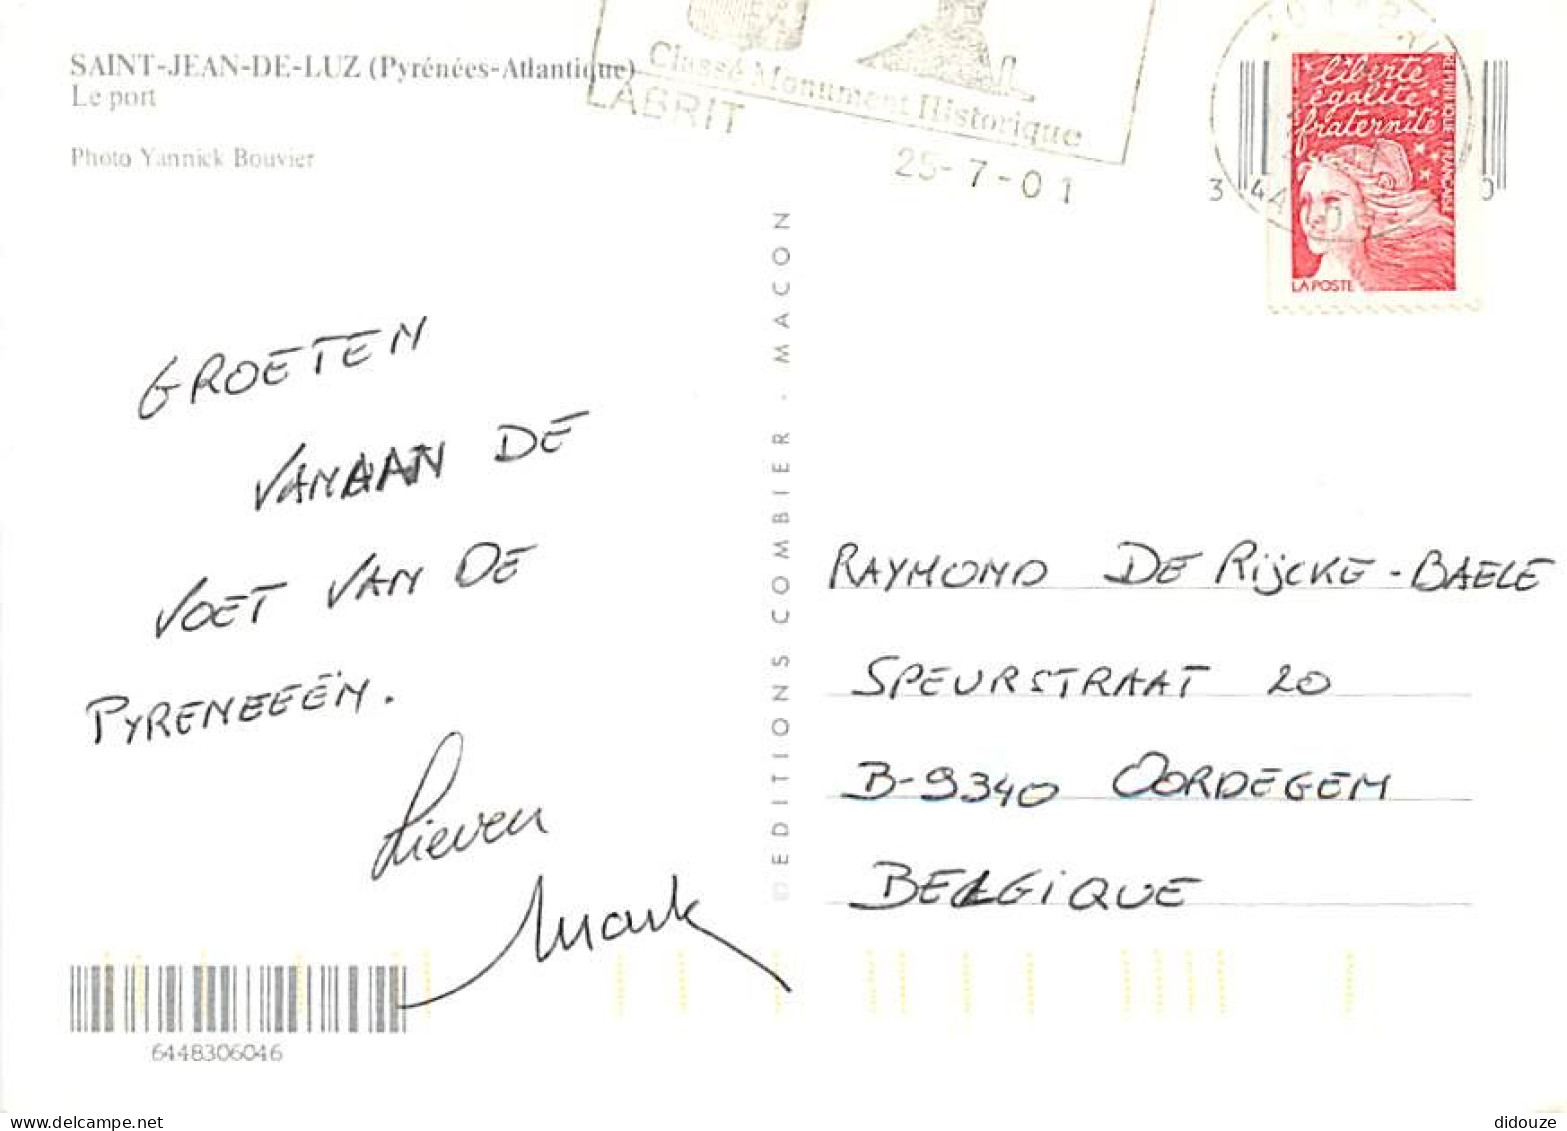 SAINT-JEAN-DE-LUZ (Pyrénées-Atlantique)
Le port
Photo Yannick Bouvier
Classé Monument Historique
LABRIT
25-7-01
liberté
égalité
fraternité
REPUBLIQUE FRANÇAISE
LA POSTE
3
GROETEN
VANAAN DE
VOET VAN DE
PYRENEEEËN.
Lieven
Mark
©EDITIONS COMBIER - MACON
RAYMOND DE RijCKE-BAELE
SPEURSTRAAT 20
B-9340 OORDEGEM
BELGiQUE
6448306046
delcampe.net
didouze